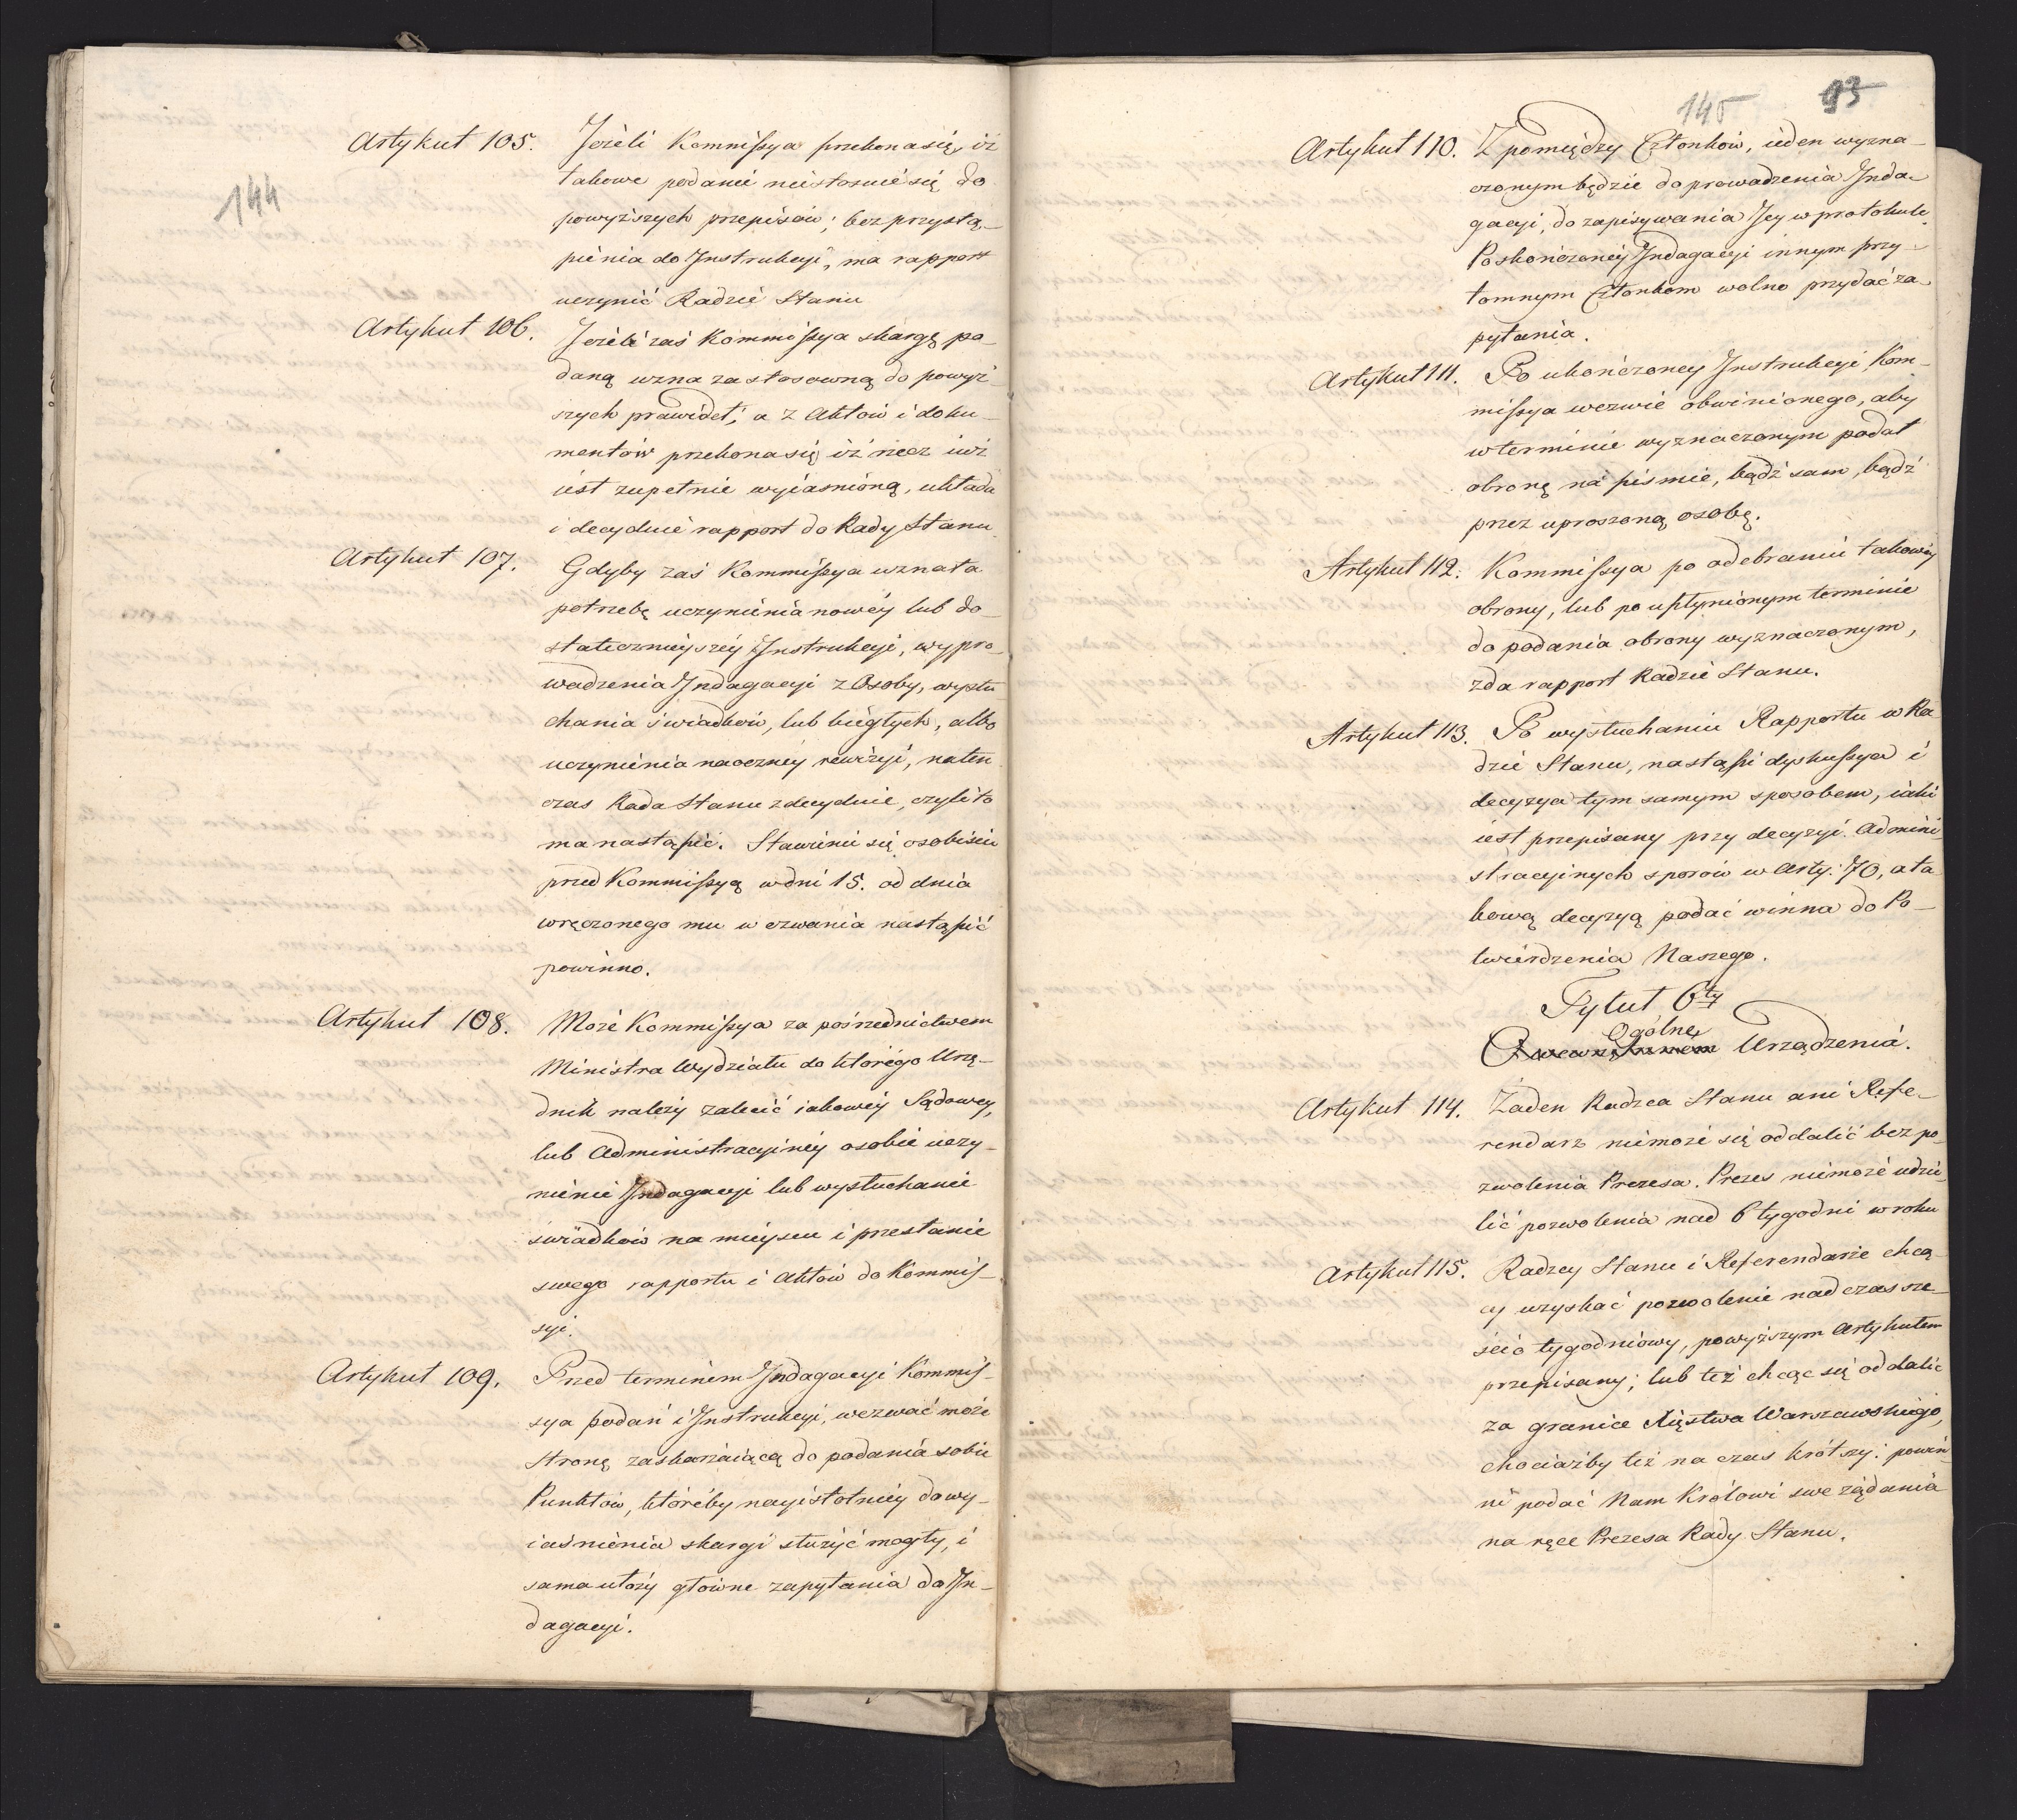 144
Artykuł 105. Jeżeli Kommissya przekona się, iż
takowe podanie niestosuie się do
powyższych przepisów; bez przystą-
pienia do Jnstrukcyi, ma rapport
uczynić Radzie Stanu
Artykuł 106. Jeżeli zaś Kommissya skargę po-
daną uzna zastosowną do powyż-
szych prawideł; a z Aktów i doku-
mentów przekona się iż rzecz iuż
iest zupełnie wyiasnioną, układa
i decyduie rapport do Rady Stanu.
Artykuł 107. Gdyby zaś Kommissya uznała
potrzebę uczynienia nowéy lub do-
stateczniejszéy Jnstrukcyi, wypro-
wadzenia Jndagacyi z Osoby, wysłu
chania świadków, lub biegłych, albo
uczynienia naoczney rewizyi, naten
czas Rada Stanu zdecyduie, czyli to
ma nastąpić. Stawienie się osobiście
przed Kommissyą w dni 15. od dnia
wręczonego mu wezwania nastąpić
powinno.
Artykuł 108. Może Kommissya za pośrzednictwem
Ministra Wydziału do którego Urzę-
dnik należy zalecić iakowéy Sądowey,
lub Administracyinéy osobie uczy-
nienie Jndagacyi lub wysłuchanie
świadków na mieyscu i przesłanie
swego rapportu i Aktów do Kommis-
syi.
Artykuł 109. Przed terminem Jndagacyi Kommis-
sya podań i Jnstrukcyi, wezwać może
Stronę zaskarżaiącą do podania sobie
Punktów, któreby nayistotniey do wy-
iaśnienia skargi służyć mogły, i
sama ułoży główne zapytania do Jn-
dagacyi.
145 93
Artykuł 110. Z pomiędzy Członków, ieden wyzna-
czonym będzie do prowadzenia Jnda-
gacyi, do zapisywania Jey w protokule.
Po skończoney Jndagacyi innym przy-
tomnym Członkom wolno przydać za-
pytania.
Artykuł 111. Po ukończoney Jnstrukcyi Kom-
missya wezwie obwinionego, aby
w terminie wyznaczonym podał
obronę na piśmie, bądź sam, bądź
przez uproszoną osobę.
Artykuł 112. Kommissya po odebraniu takowéy
obrony, lub po upłynionym terminie
do podania obrony wyznaczonym,
zda rapport Radzie Stanu.
Artykuł 113. Po wysłuchaniu Rapportu w Ra-
dzie Stanu, nastąpi dyskussya i
decyzya tym samym sposobem, iaki
iest przepisany przy decyzyi Admini
stracyinych sporów w Arty: 70, a ta
kową decyzyą podać winna do Po-
twierdzenia Naszego.
Tytuł 6ty
Ogólne
Urządzenia.
Artykuł 114. Żaden Radzca Stanu ani Refe-
rendarz niemoże się oddalić bez po-
zwolenia Prezesa. Prezes niemoże udzie-
lić pozwolenia nad 6 tygodni w roku
Artykuł 115. Radzcy Stanu i Referendarze chcą-
cy uzyskać pozwolenie nad czas sze-
ścio tygodniowy, powyższym Artykułem
przepisany; lub też chcąc się oddalić
za granice Xięstwa Warszawskiego,
chociażby też na czas krótszy: powin-
ni podać Nam Królowi swe żądania
na ręce Prezesa Rady Stanu.